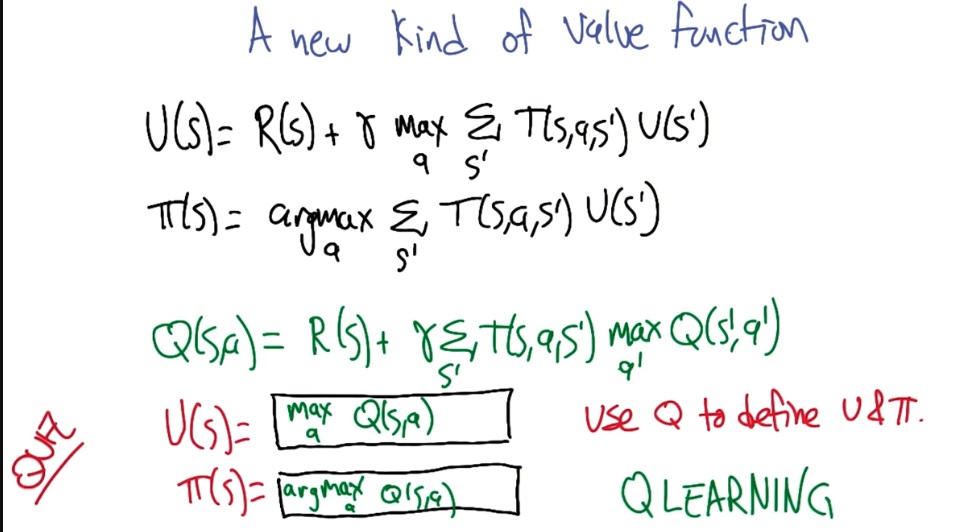 A new kind of value function
U(s)= R(s) + γ max_a Σ_s' T(s,a,s') U(s')
π(s)= argmax_a Σ_s' T(s,a,s') U(s')
Q(s,a)= R(s)+ γ Σ_s' T(s,a,s') max_a' Q(s',a')
U(s)= max_a Q(s,a)
use Q to define U & π.
QUIZ
π(s)= argmax_a Q(s,a)
Q LEARNING